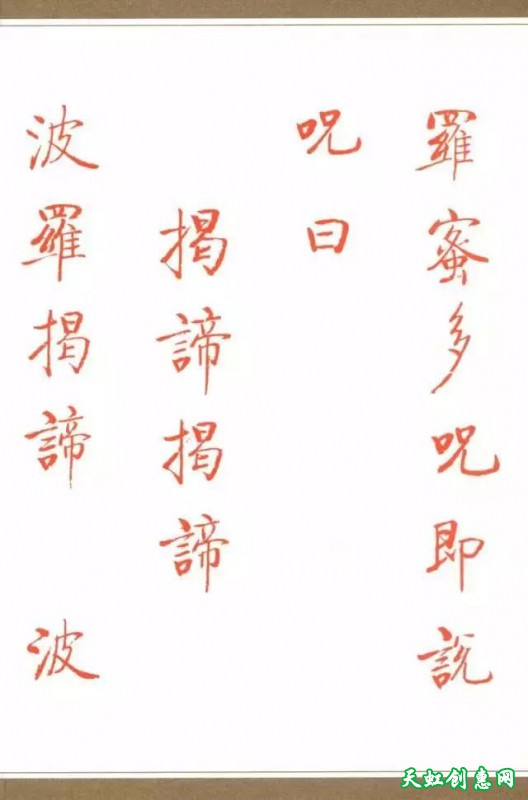 羅蜜多呪即説
呪曰
揭諦揭諦
波羅揭諦 波
天虹创惠网